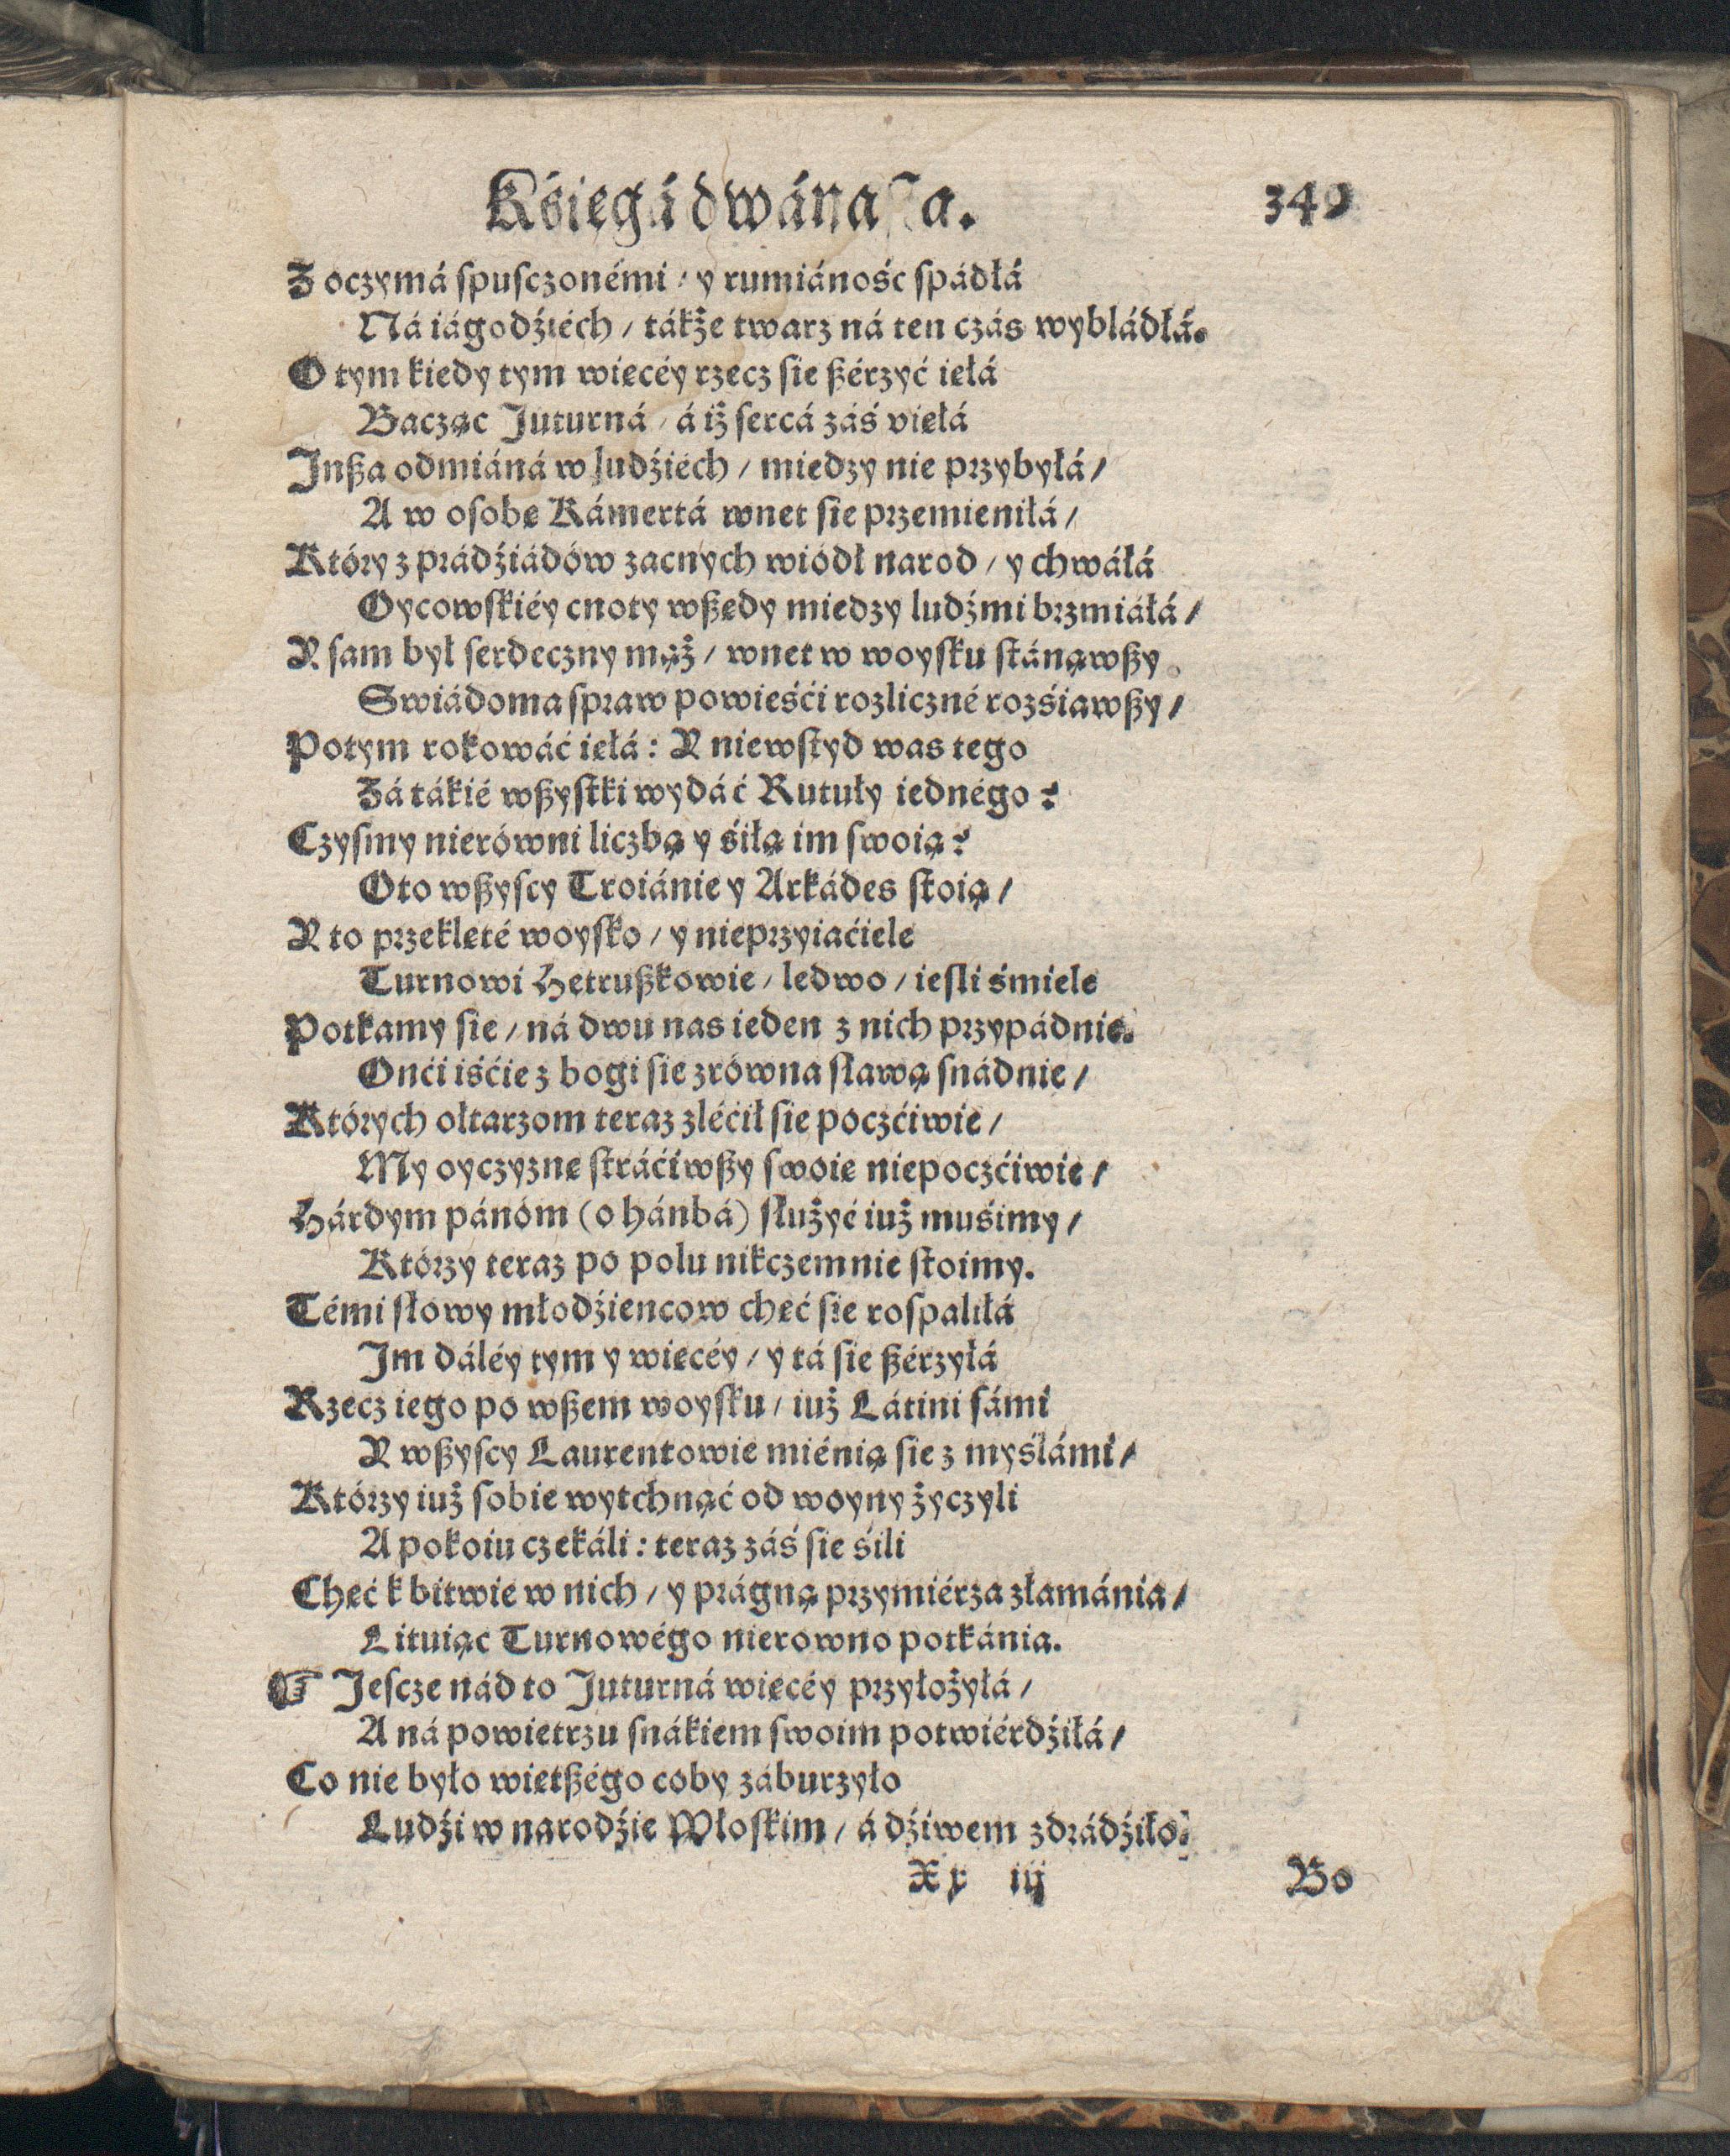 Kśięgá dwánaſta. 349
Z oczymá ſpuſczonémi / y rumiáność ſpádłá
Ná iágodźiéch / tákże twarz ná ten czás wybládłá.
O tym kiedy tym więcéy rzecz ſie ßérzyć ięłá
Bacząc Juturná / á iż ſercá záś vięłá
Jnßa odmiáná w ludźiéch / miedzy nie przybyłá /
A w oſobę Kámertá wnet ſie przemieniłá /
Który z prádźiádów zacnych wiódł narod / y chwáłá
Oycowſkiéy cnoty wßędy miedzy ludźmi brzmiáłá /
Y ſam był ſerdeczny mąż / wnet w woyſku ſtánąwßy
Swiádoma ſpraw powieśći rozliczné rozśiawßy /
Potym rokowáć ięłá: Y niewſtyd was tego
Zá tákié wßyſtki wydáć Rutuły iednégo?
Czyſmy nierówni liczbą y śiłą im ſwoią?
Oto wßyſcy Troiánie y Arkádes ſtoią /
Y to przeklęté woyſko / y nieprzyiaćiele
Turnowi Hetrußkowie / ledwo / ieſli śmiele
Potkamy ſie / ná dwu nas ieden z nich przypádnie.
Onći iśćie z bogi ſie zrówna ſławą ſnádnie /
Których ołtarzom teraz zléćił ſie poczćiwie /
My oyczyznę ſtráćiwßy ſwoię niepoczćiwie /
Hárdym pánóm (o hánbá) ſłużyć iuż muśimy /
Którzy teraz po polu nikczemnie ſtoimy.
Témi ſłowy młodźiencow chęć ſie roſpaliłá
Jm dáléy tym y więcéy / y tá ſie ßérzyłá
Rzecz iego po wßem woyſku / iuż Látini ſámi
Y wßyſcy Laurentowie miénią ſie z myślámi /
Którzy iuż ſobie wytchnąć od woyny życzyli
A pokoiu czekáli: teraz záś ſie śili
Chęć k bitwie w nich / y prágną przymiérza złamánia /
Lituiąc Turnowégo nierowno potkánia.
☞ Jeſcze nád to Juturná więcéy przyłożyłá /
A ná powietrzu ſnákiem ſwoim potwiérdźiłá /
Co nie było więtßégo coby záburzyło
Ludźi w narodźie Włoſkim / á dźiwem zdrádźiło.
Xx iij Bo